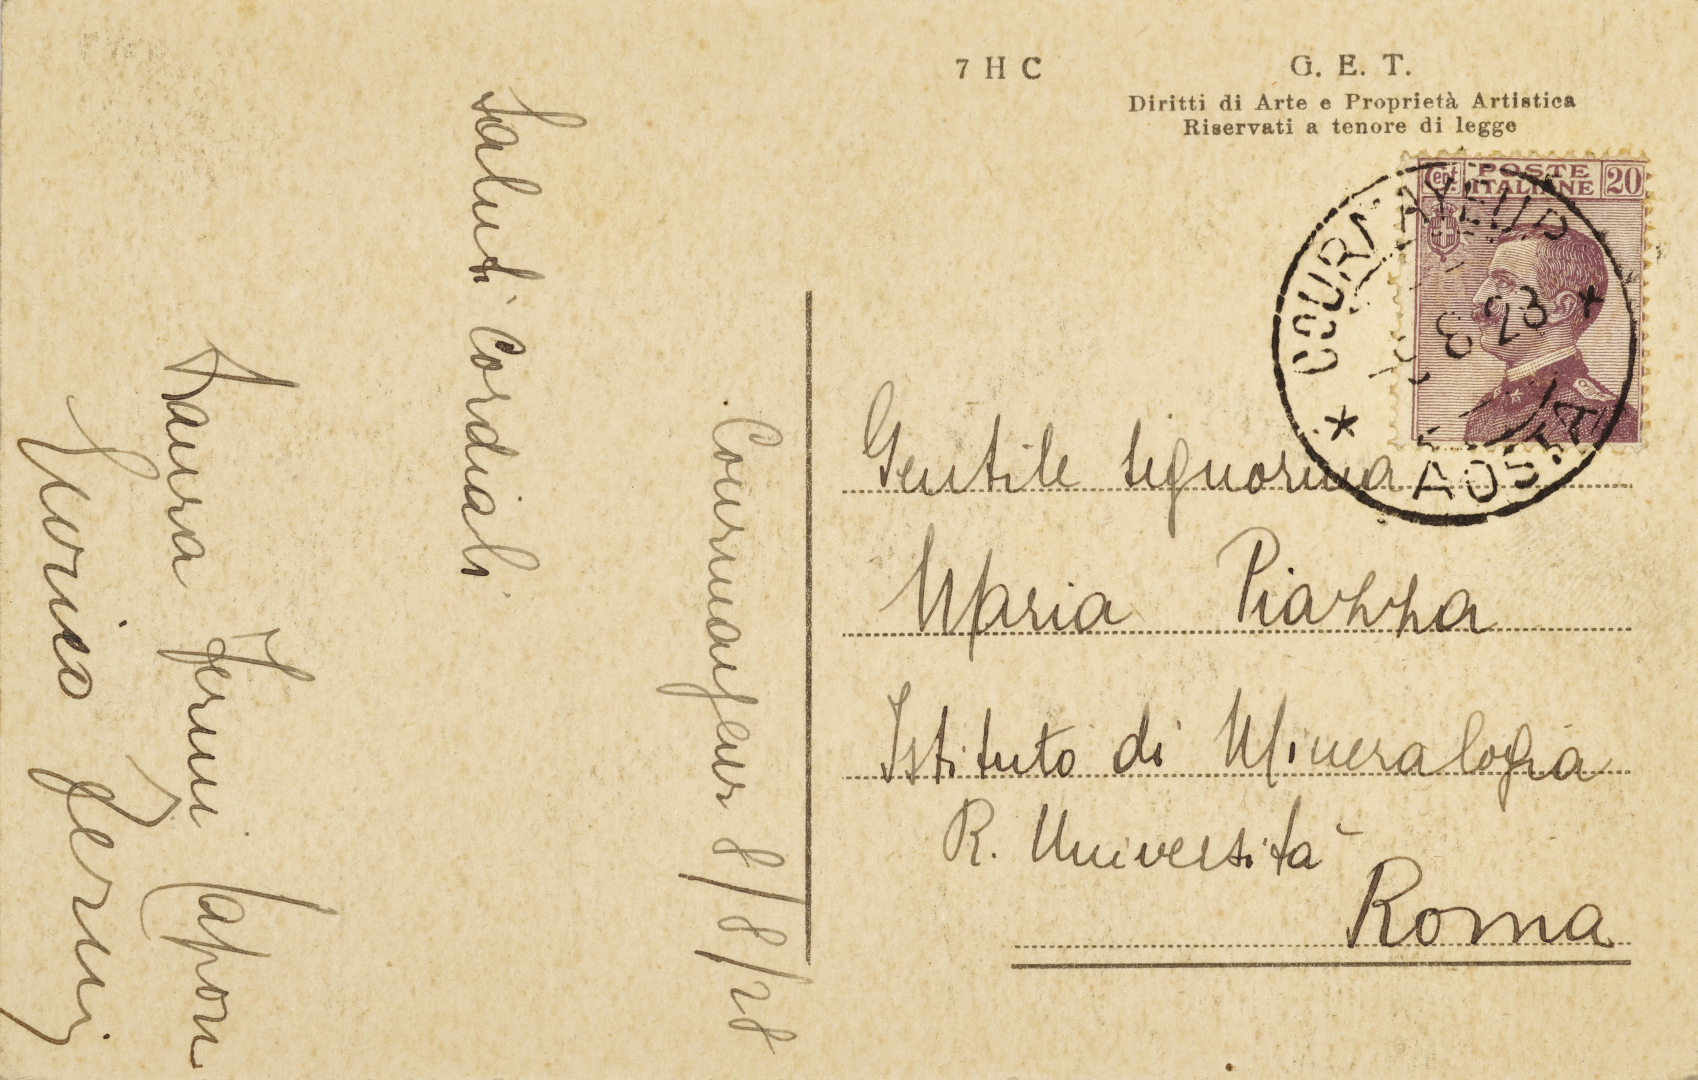 7 H C
G. E. T.
Diritti di Arte e Proprietà Artistica
Riservati a tenore di legge
Cent. POSTE ITALIANE 20
COURMAYEUR
8 28
AOSTA
Gentile signorina
Maria Piazza
Istituto di Mineralogia
R. Università
Roma
Courmayeur 8/8/28
Saluti Cordiali
Laura Fermi Capon
Enrico Fermi